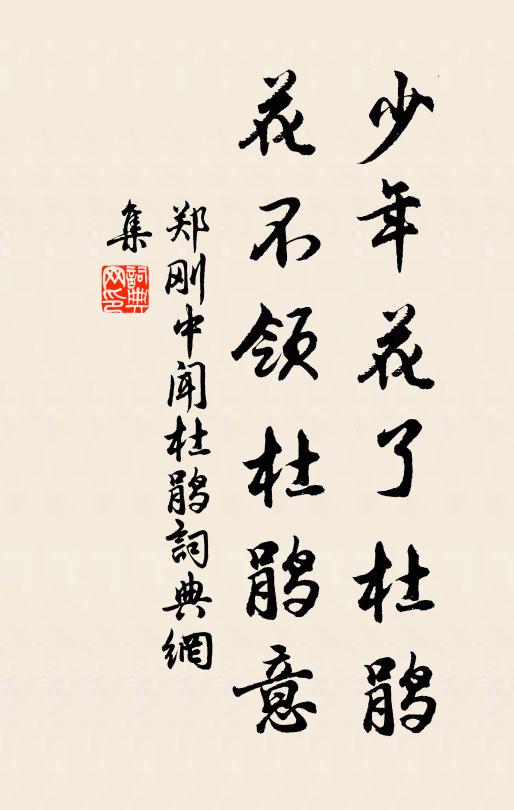 少年花了杜鹃
花不领杜鹃意
郑刚中闻杜鹃詞典網
集
詞典网印